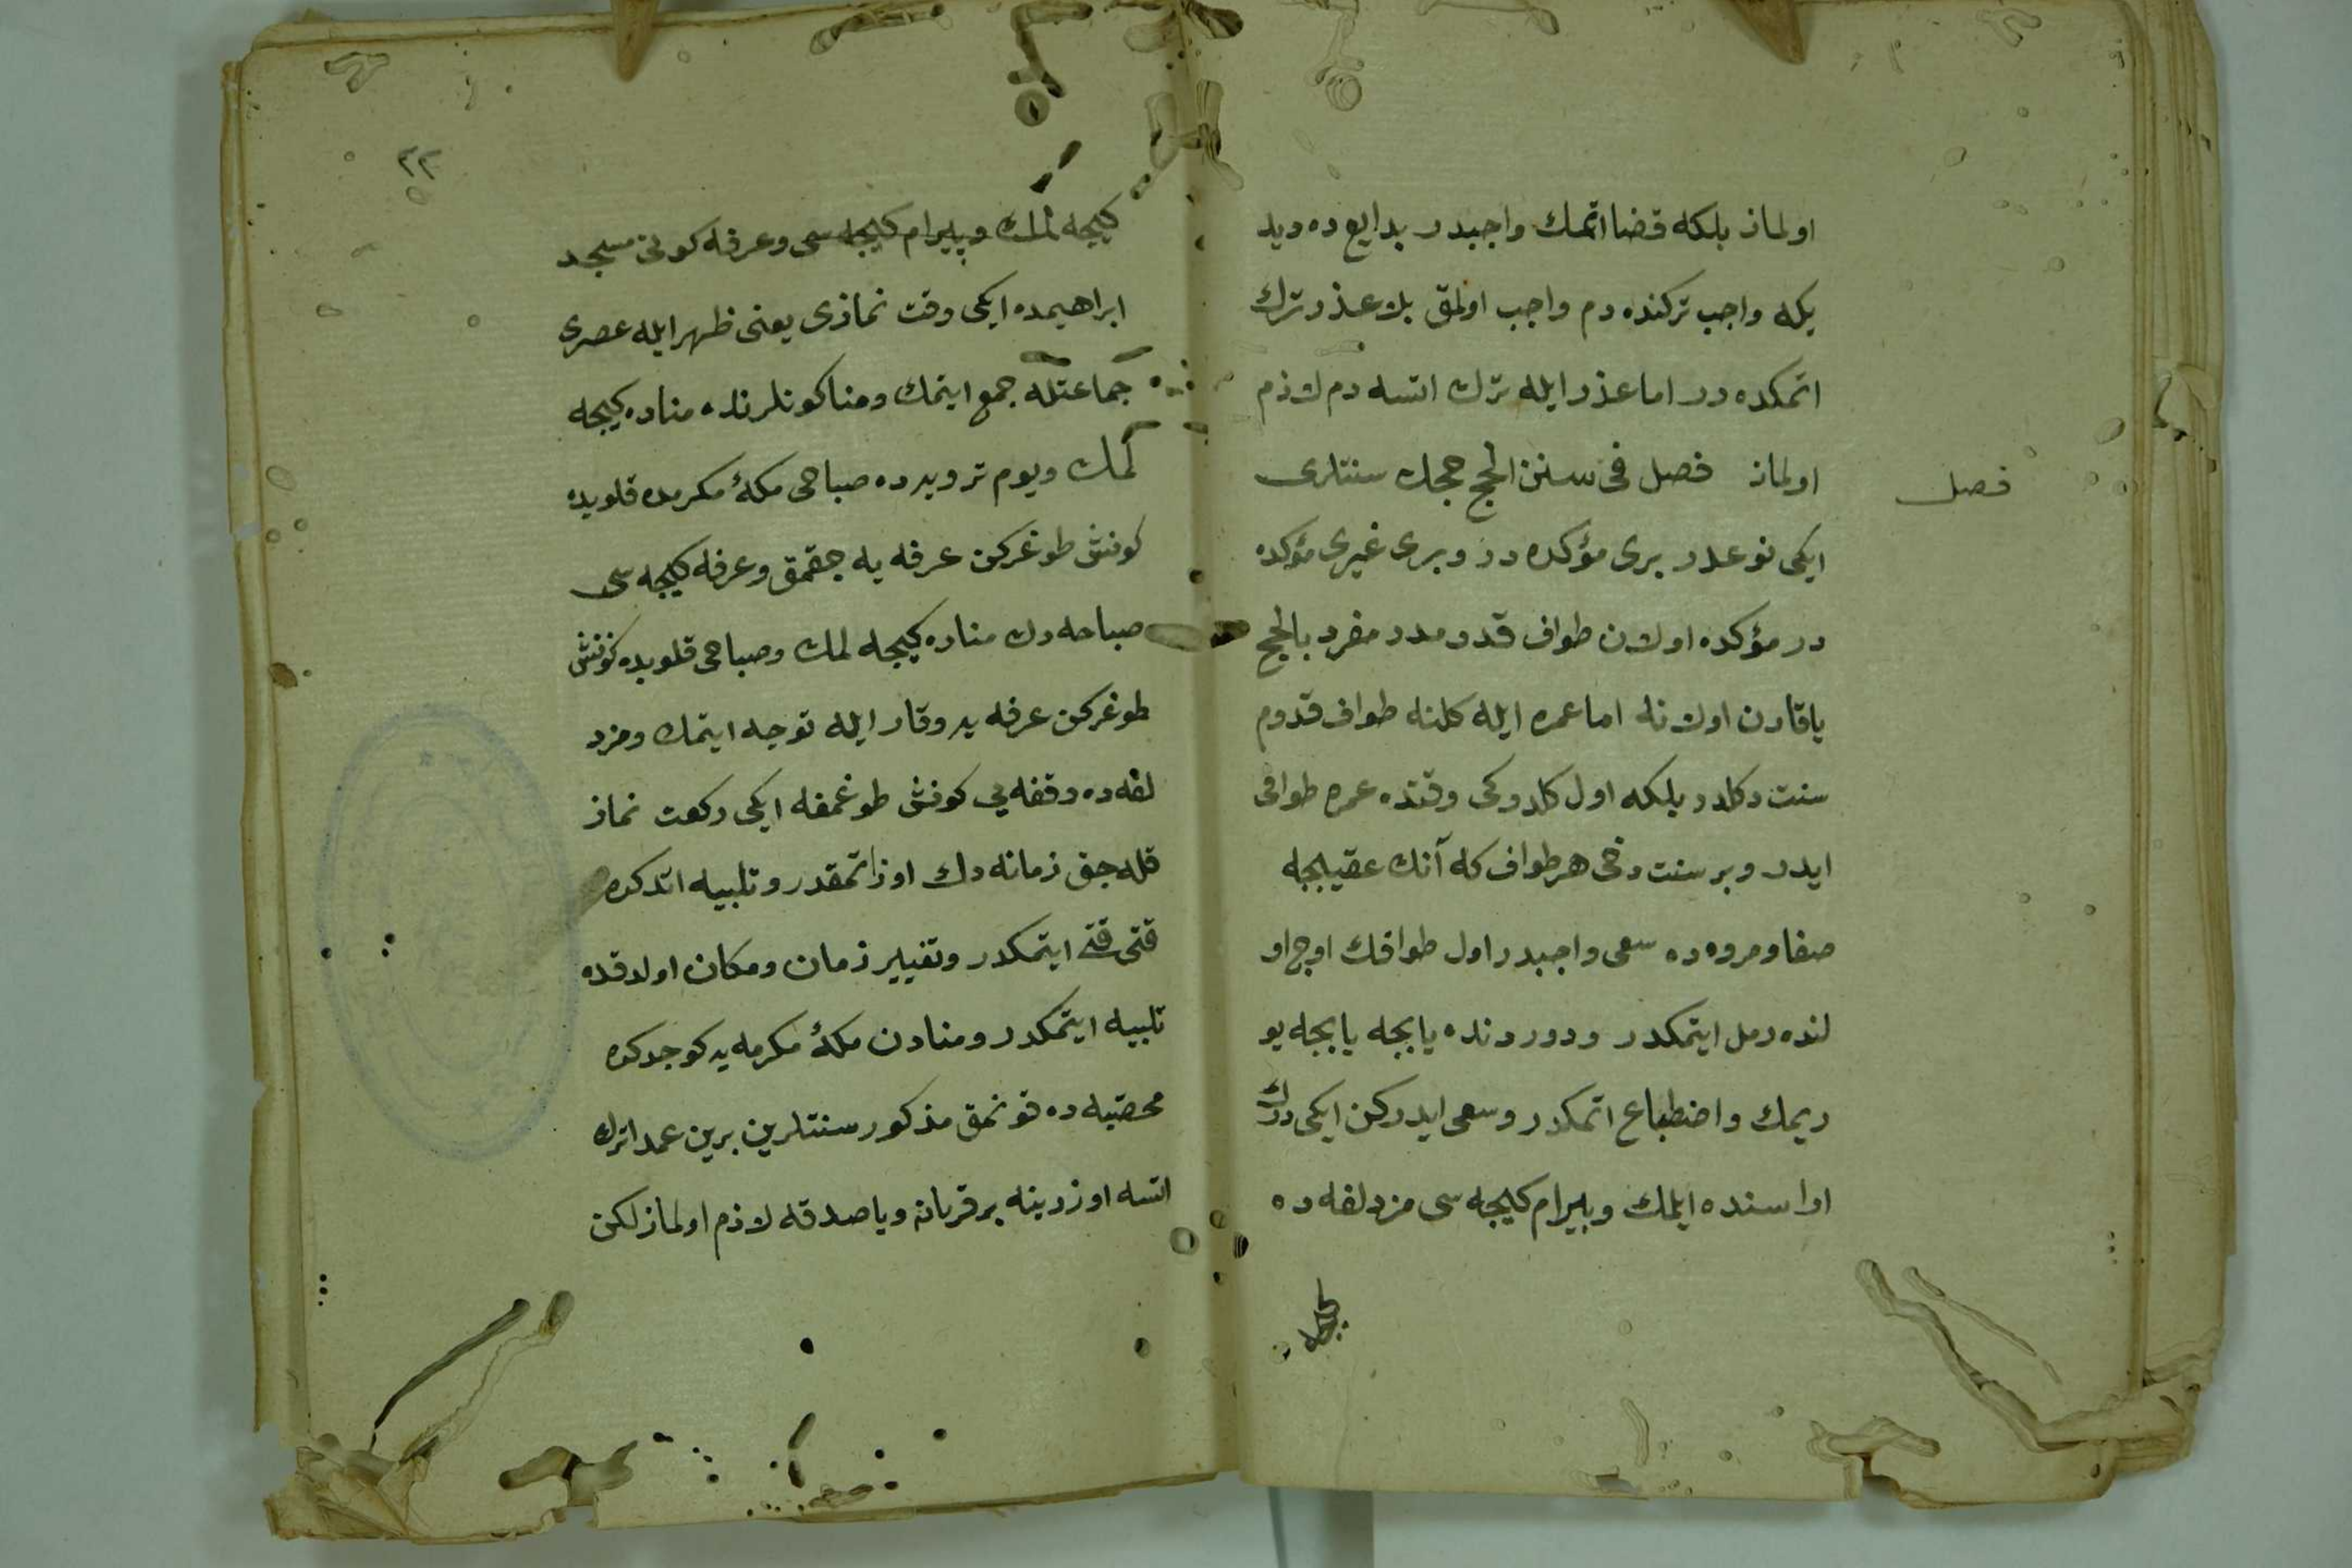 اولماز بلكه قضا اتمك واجبدر بدايع ده ديد
يكه واجب تركنده دم واجب اولمق بلا عذر ترك
اتمكده در اما عذر ايله ترك اتسه دم لازم
اولماز فصل فى سنن الحج حجك سنتلرى
فصل
ايكى نوعدر برى مؤكده در وبرى غيرى مؤكده
در مؤكده اولان طواف قدومدر مفرد بالحج
يا قارن اولانه اما عمره ايله كلنه طواف قدوم
سنت دكلدر بلكه اول كلدوكى وقتده عمره طوافى
ايدر وبر سنت دخى هر طواف كه آنك عقيبجه
صفا ومروه ده سعى واجبدر اول طوافك اوج او
لنده رمل ايتمكدر ودوردنده يابجه يابجه يو
ريمك واضطباع اتمكدر وسعى ايدركن ايكى درك
اراسنده ايلمك وبيرام كيجه سى مزدلفه ده
كيجه
٢٢
كيجه لمك وبيرام كيجه سى وعرفه كونى مسجد
ابراهيمده ايكى وقت نمازى يعنى ظهر ايله عصرى
جماعتله جمع ايتمك ومنا كونلرنده مناده كيجه
لمك ويوم ترويه ده صباحى مكۀ مكرمده قلوبده
كونش طوغركن عرفه يه جقمق وعرفه كيجه سى
صباحه دك مناده كيجه لمك وصباحى قلوبده كونش
طوغركن عرفه يه وقار ايله توجه ايتمك ومزد
لفه ده وقفه يي كونش طوغمغه ايكى ركعت نماز
قله جق زمانه دك اوزاتمقدر وتلبيه اتدكده
قتى قتى ايتمكدر وتغيير زمان ومكان اولدقده
تلبيه ايتمكدر ومنادن مكۀ مكرمه يه كوجدكده
محصبه ده قونمق مذكور سنتلرين برين عمدا ترك
اتسه اوزرينه بر قربان ويا صدقه لازم اولماز لكن